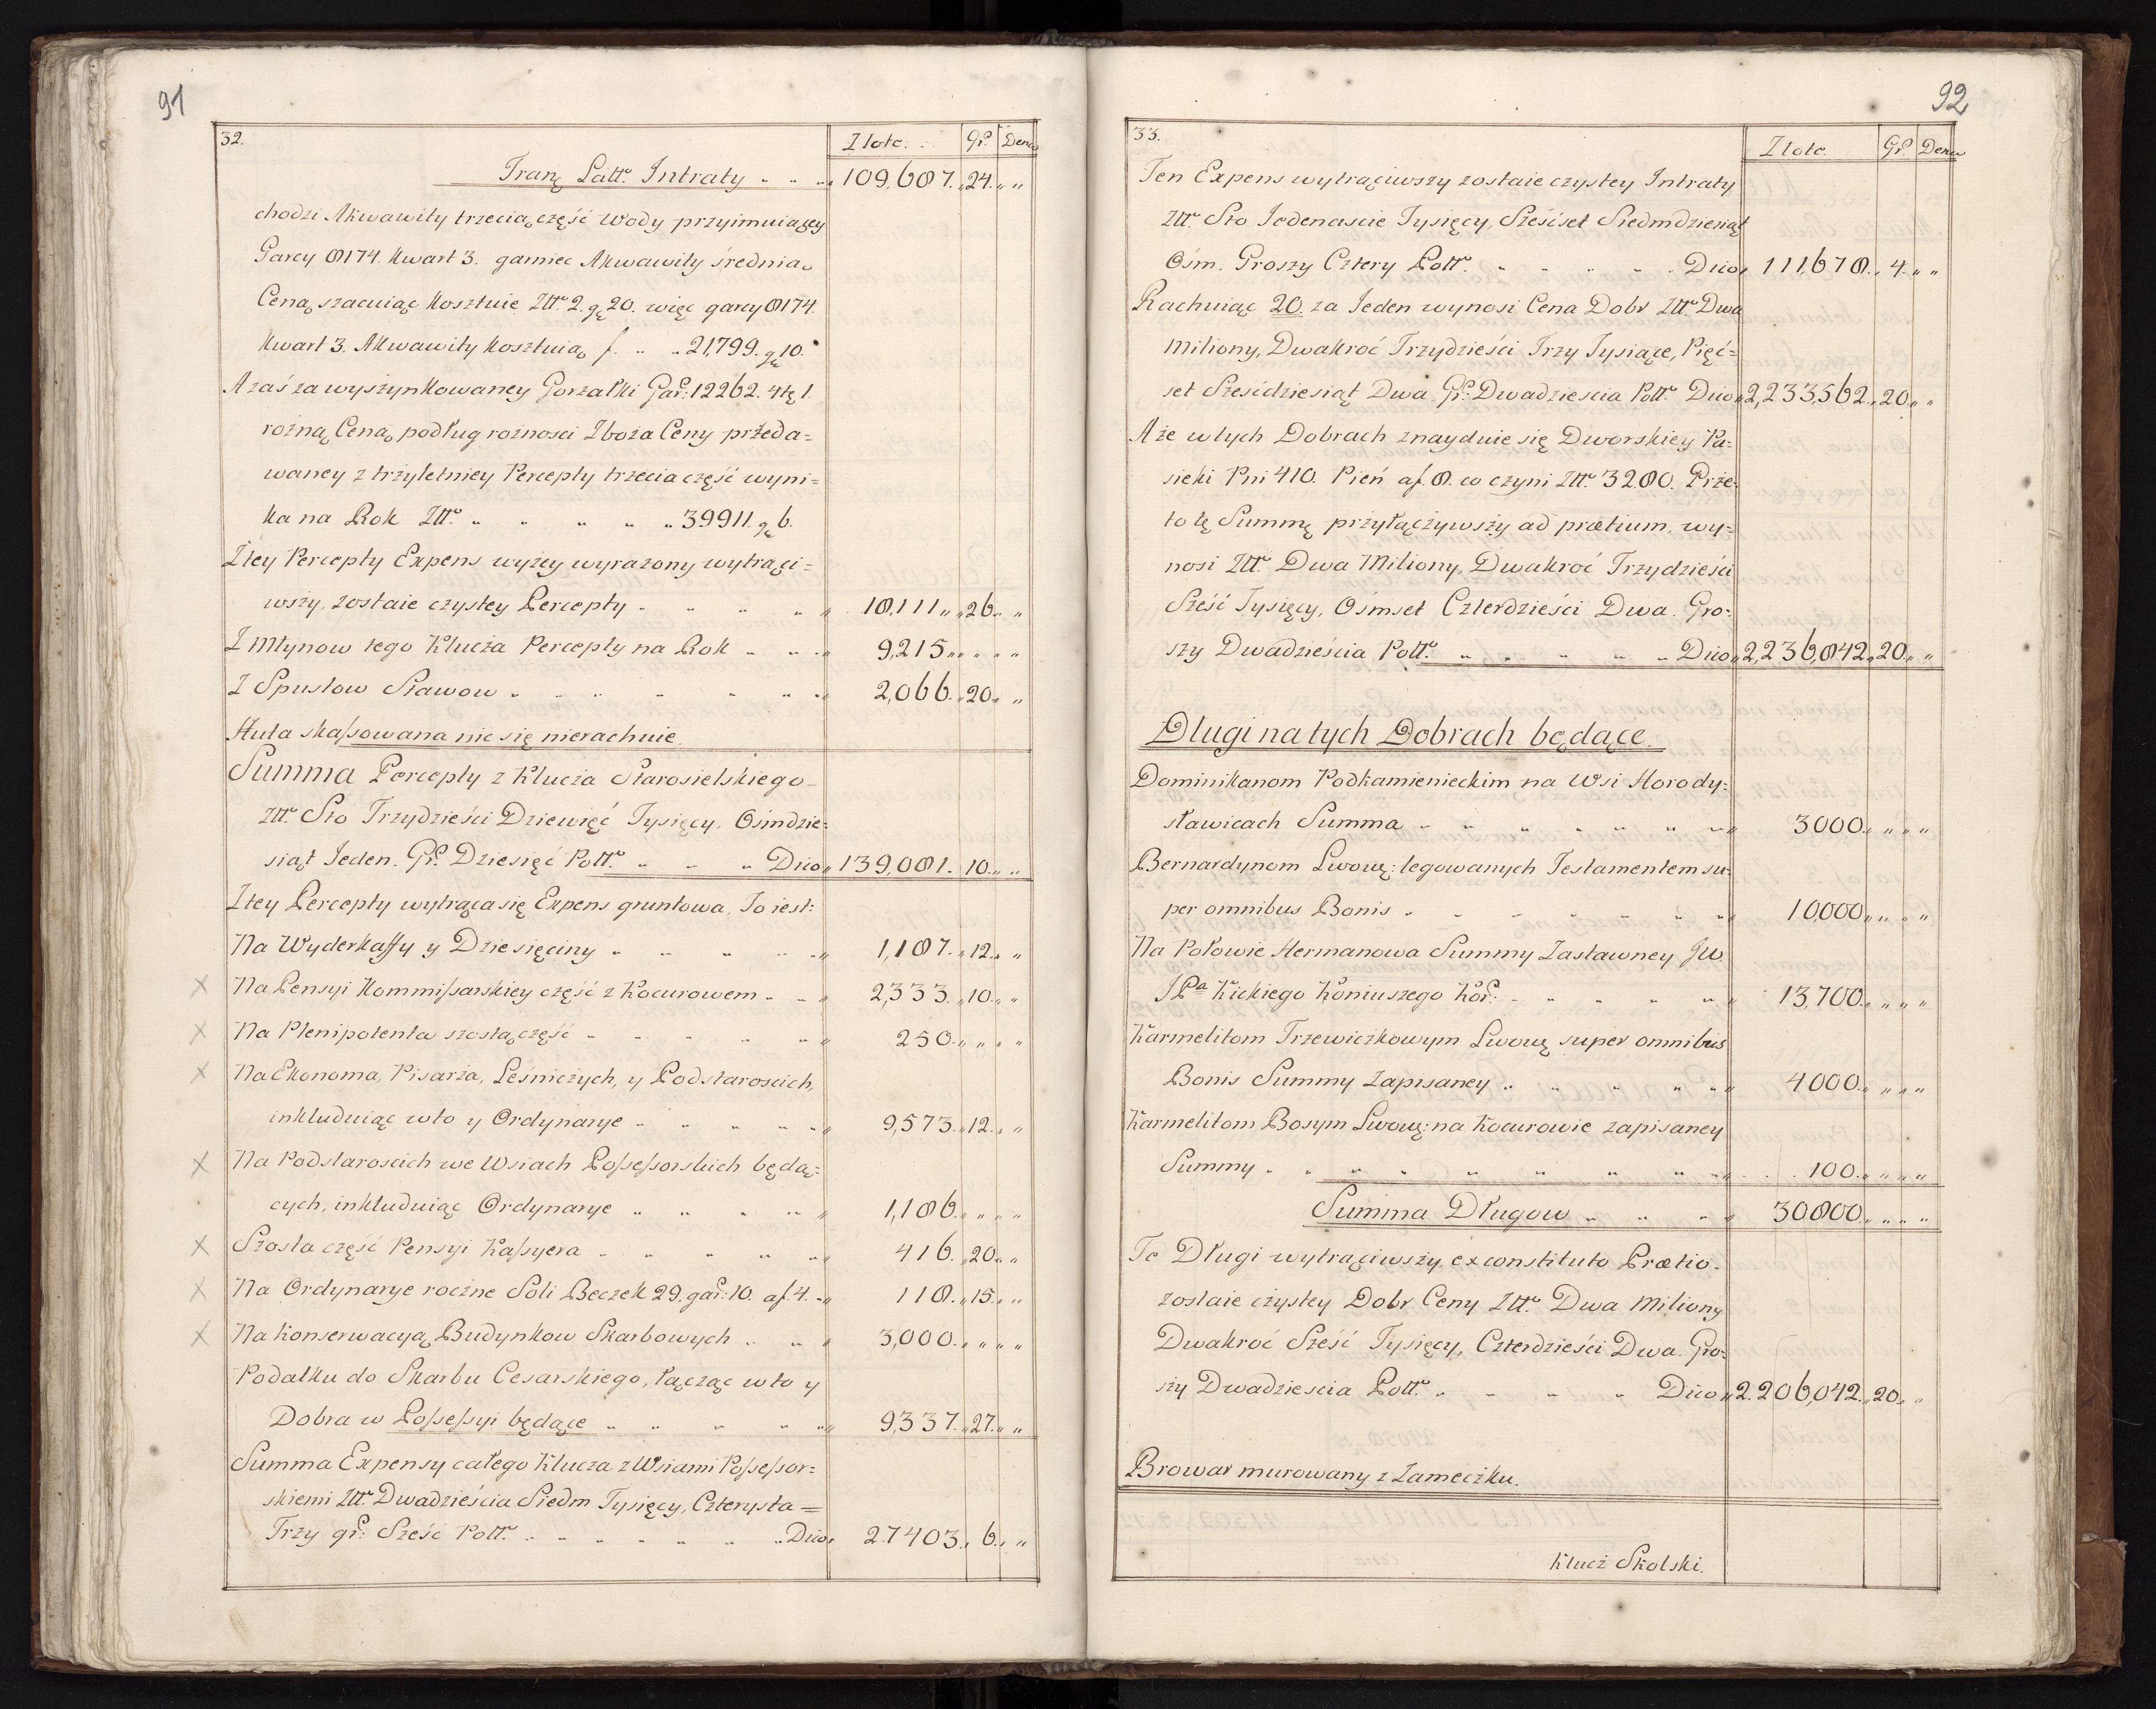 91
32. Złote. Gr. Dena
Tranę Latt. Intraty 109,687. 24.
chodzi Akwawity trzecią część wody przyimuiącey
Garcy 8174. Kwart 3. garniec Akwawity średnią
Ceną szacuiąc kosztuie Zttr. 2. gę 20. więc garcy 8174.
Kwart 3. Akwawity kosztuią f. 21,799. gę 10.
A zaś za wyszynkowaney Gorzałki Gar: 12262. 4tę 1.
rożną Ceną podług rożnosci Zboża Ceny przeda=
waney z trzyletniey Percepty trzecia część wyni=
ka na Rok Ztt. 39911. gę 6.
Z tey Percepty Expens wyżey wyrażony wytrąci=
wszy, zostaie czystey Percepty 18,111 26
Z Młynow tego Klucza Percepty na Rok 9,215
Z Spustow Stawow 2,066. 20
Huta skassowana nic się nierachuie.
Summa Percepty z Klucza Starosielskiego
Ztt. Sto Trzydzieści Dziewięć Tysięcy, Ośmdzie=
siąt Jeden. Gr. Dziesięć Poll. Dico 139,081. 10.
Z tey Percepty wytrąca się Expens gruntowa, To iest:
Na Wyderkaffy y Dziesięciny 1,187. 12.
× Na Pensyi Kommissarskiey część z Kocurowem 2,333. 10.
× Na Plenipotenta szostą część 250.
× Na Ekonoma, Pisarza, Leśniczych, y Podstaroscich,
inkluduiąc w to y Ordynarye 9,573. 12.
× Na Podstaroscich we Wsiach Possessorskich będą=
cych, inkluduiąc Ordynarye 1,186.
× Szosta część Pensyi Kassyera 416. 20.
× Na Ordynarye roczne Soli Beczek 29. gar: 10. af. 4. 118. 15.
× Na Konserwacyą Budynkow Skarbowych 3,000.
Podatku do Skarbu Cesarskiego, łącząc w to y
Dobra w Possessyi będące 9,337. 27.
Summa Expensy całego Klucza z Wsiami Possessor=
skiemi Ztt. Dwadzieścia Siedm Tysięcy, Czterysta=
Trzy gr: Sześć Poll. Dico 27403. 6.
92
33. Złote. Gr. Dena
Ten Expens wytrąciwszy zostaie czystey Intraty
Ztt. Sto Jedenascie Tysięcy, Sześćset Siedmdziesiąt
Ośm. Groszy Cztery Poll. Dico 111,678. 4.
Rachuiąc 20. za Jeden wynosi Cena Dobr Ztt. Dwa
Miliony, Dwakroć Trzydzieści Trzy Tysiące, Pięć=
set Sześćdziesiąt Dwa. Gr. Dwadziescia Poll. Dico 2,233,562. 20.
A że w tych Dobrach znayduie się Dworskiey Pa=
sieki Pni 410. Pień af. 8. co czyni Ztt. 3280. Prze=
to tę Summę przyłączywszy ad prætium, wy=
nosi Ztt. Dwa Miliony, Dwakroć Trzydzieści
Sześć Tysięcy, Ośmset Czterdzieści Dwa. Gro=
szy Dwadzieścia Poll. Dico 2,236,842. 20.
Długi na tych Dobrach będące.
Dominikanom Podkamienieckim na Wsi Horody=
sławicach Summa 3000.
Bernardynom Lwowę: legowanych Testamentem su=
per omnibus Bonis 10,000
Na Połowie Hermanowa Summy Zastawney JW
JPa Kickiego Koniuszego Kor: 13,700.
Karmelitom Trzewiczkowym Lwowę super omnibus
Bonis Summy Zapisaney 4000.
Karmelitom Bosym Lwowę: na Kocurowie zapisaney
Summy 100.
Summa Długow 30800.
Te Długi wytrąciwszy, ex constituto Prætio.
zostaie czystey Dobr Ceny Ztt. Dwa Miliony
Dwakroć Sześć Tysięcy, Czterdzieści Dwa. Gro=
szy Dwadziescia Poll. Dico 2.206,042. 20.
Browar murowany z Zameczku.
Klucz Skolski.